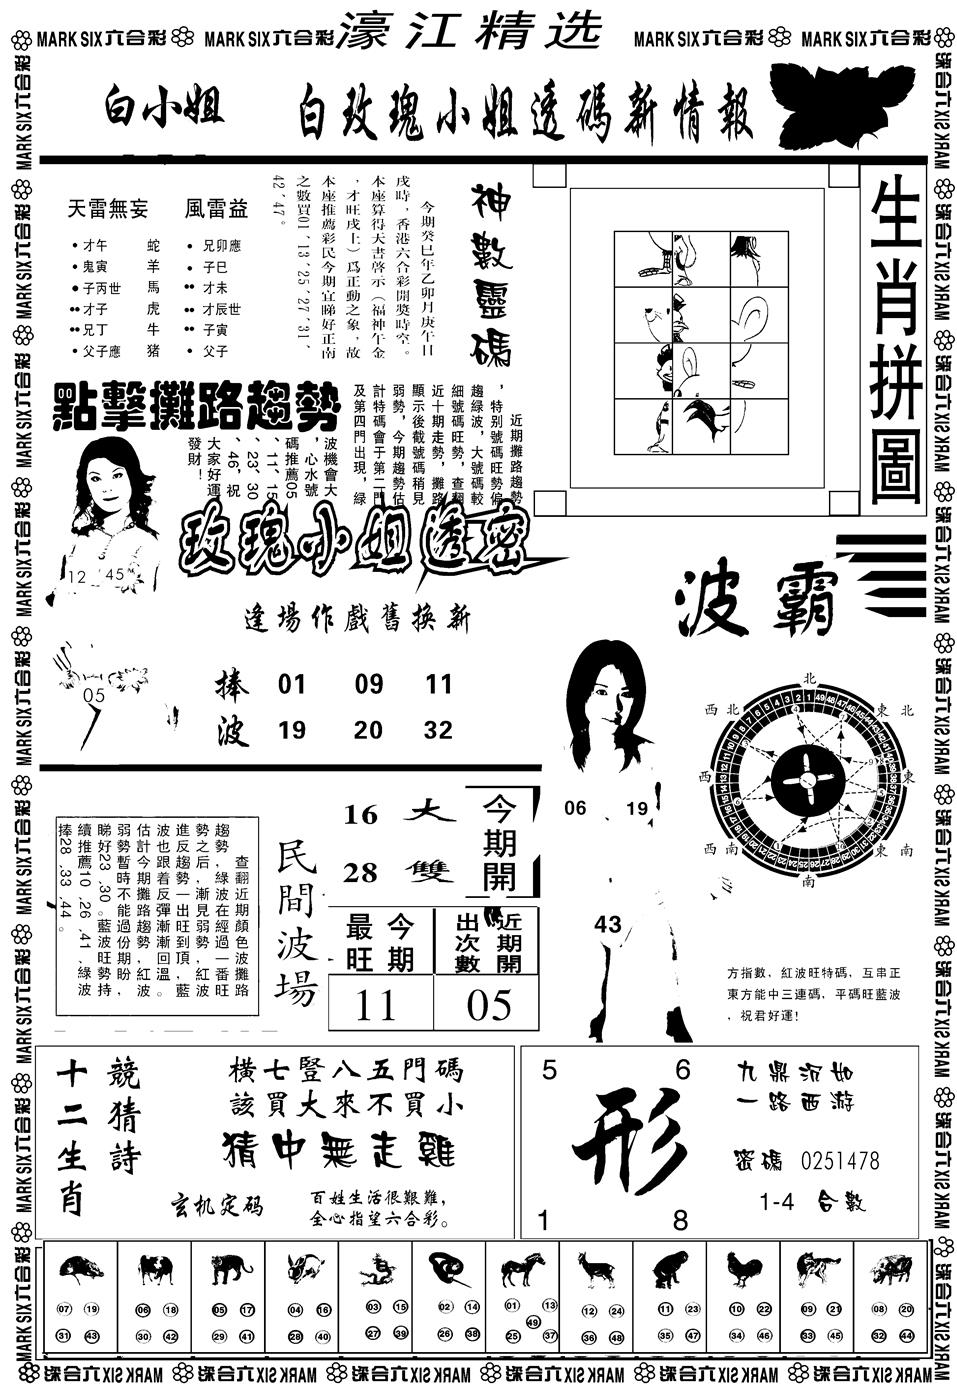 MARK SIX六合彩 MARK SIX六合彩 濠江精选 MARK SIX六合彩 MARK SIX六合彩
白小姐 白玫瑰小姐透碼新情報
天雷無妄 風雷益
•才午 蛇 •兄卯應
•鬼寅 羊 •子巳
•子丙世 馬 ••才未
••才子 虎 ••才辰世
••兄丁 牛 ••子寅
•父子應 猪 •父子
神數靈碼
今期癸巳年乙卯月庚午日
戌時，香港六合彩開獎時空。
本座算得天書啓示（福神午金
，才旺戌土）爲正動之象，故
本座推薦彩民今期宜睇好正南
之數買01、13、25、27、31、
42、47。
生肖拼圖
點擊攤路趨勢
近期攤路趨勢
，特别號碼旺勢偏
趨綠波，大號碼較
細號碼旺勢，查翻
近十期走勢，攤路
顯示後截號碼稍見
弱勢，今期趨勢估
計特碼會于第二門
及第四門出現，綠
波機會大
，心水號
碼推薦05
、11、15
、23、30
、46，祝
大家好運
發財！
12 45
05
玫瑰小姐透密
逢場作戲舊换新
捧 01 09 11
波 19 20 32
波霸
06 19
43
北
西北 東北
西 東
西南 東南
南
方指數，紅波旺特碼，互串正
東方能中三連碼，平碼旺藍波
，祝君好運！
查翻近期顏色波攤路
趨勢，綠波在經過一番旺
勢之后，漸見弱勢，紅波
進反趨勢一出旺到頂，藍
波也跟着反彈漸漸回溫。
估計今期攤路趨勢，紅波
弱勢暫時不能過份期盼，
睇好23、30。藍波旺勢持
續推薦10、26、41，綠波
捧28、33、44。
民間波場
16 大 今期開
28 雙
最旺 今期 出次數 近期開
11 05
十二生肖 競猜詩
橫七豎八五門碼
該買大來不買小
猜中無走雞
玄机定码 百姓生活很艱難，
全心指望六合彩。
5 6
形
1 8
九鼎沉如
一路西游
密碼 0251478
1-4 合數
07 19 06 18 05 17 04 16 03 15 02 14 01 13 12 24 11 23 10 22 09 21 08 20
49
31 43 30 42 29 41 28 40 27 39 26 38 25 37 36 48 35 47 34 46 33 45 32 44
MARK SIX六合彩 MARK SIX六合彩 MARK SIX六合彩 MARK SIX六合彩 MARK SIX六合彩